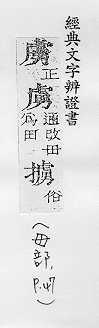 經典文字辨證書
虜正虜通改毌爲田擄俗
(毌部, P.47)